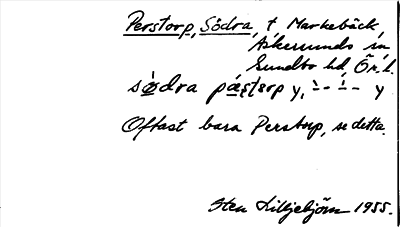 Perstorp, Södra, t Markebäck,
Askersunds sn,
Sundbo hd, Ör. l.
södra pæstorp y,
Oftast bara Perstorp, se detta.
Sten Lilljebjörn 1955.